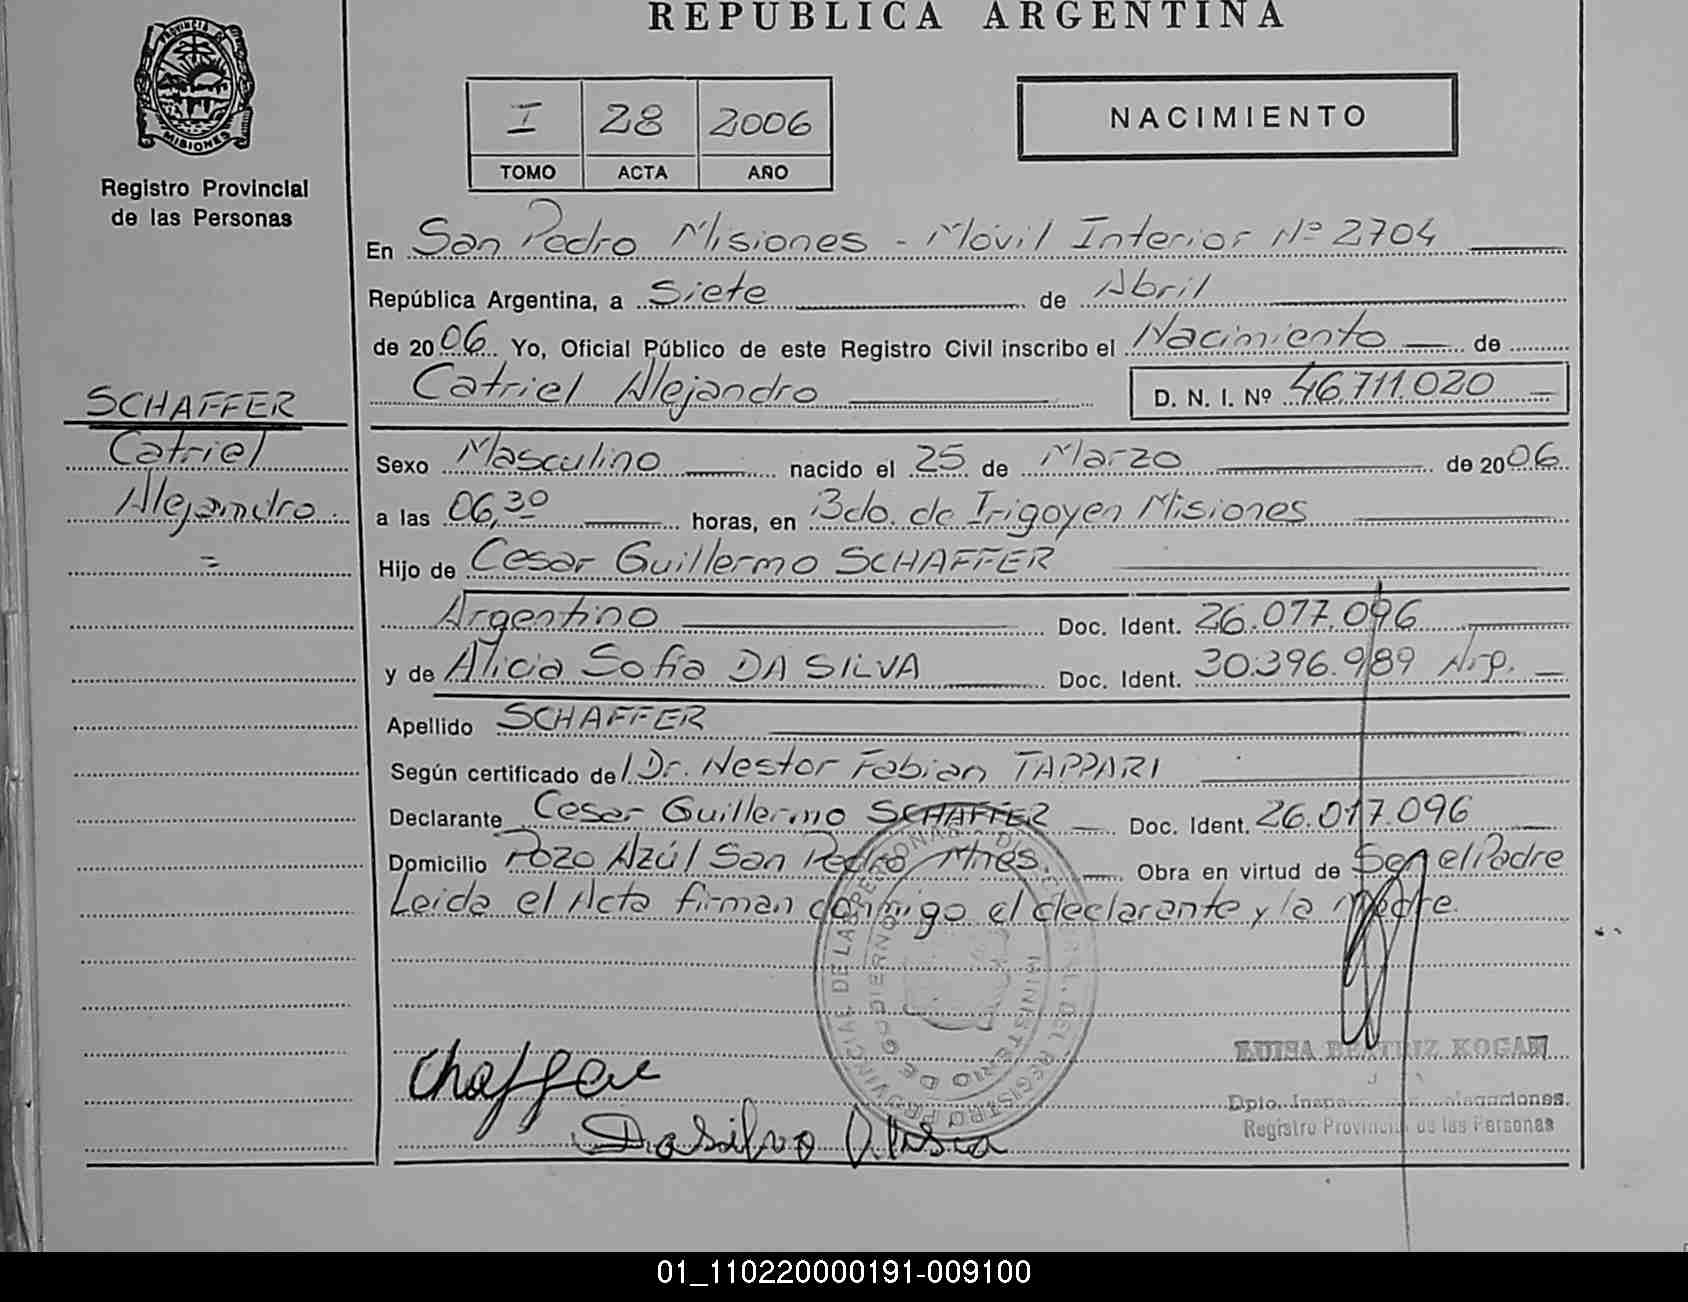 REPUBLICA ARGENTINA
PROVINCIA DE
MISIONES
Registro Provincial
de las Personas
I 28 2006
TOMO ACTA AÑO
NACIMIENTO
En San Pedro Misiones - Móvil Interior Nº 2704
República Argentina, a Siete de Abril
de 2006 Yo, Oficial Público de este Registro Civil inscribo el Nacimiento de
Catriel Alejandro D. N. I. Nº 46.711.020
SCHAFFER
Catriel
Alejandro.
=
Sexo Masculino nacido el 25 de Marzo de 2006
a las 06,30 horas, en Bdo. de Irigoyen Misiones
Hijo de Cesar Guillermo SCHAFFER
Argentino Doc. Ident. 26.077.096
y de Alicia Sofia DA SILVA Doc. Ident. 30.396.989 Arg.
Apellido SCHAFFER
Según certificado del Dr. Nestor Fabian TAPPARI
Declarante Cesar Guillermo SCHAFFER Doc. Ident. 26.017.096
Domicilio Pozo Azúl San Pedro Mnes. Obra en virtud de Ser el Padre
Leida el Acta firman conmigo el declarante y la Madre.
PROVINCIAL DE LAS PERSONAS
DEL REGISTRO
MINISTERIO DE GOBIERNO
LUISA BEATRIZ KOGAN
Dpto.
Registro Provincial de las Personas
Chaffer
Da Silva Alisia
01_110220000191-009100